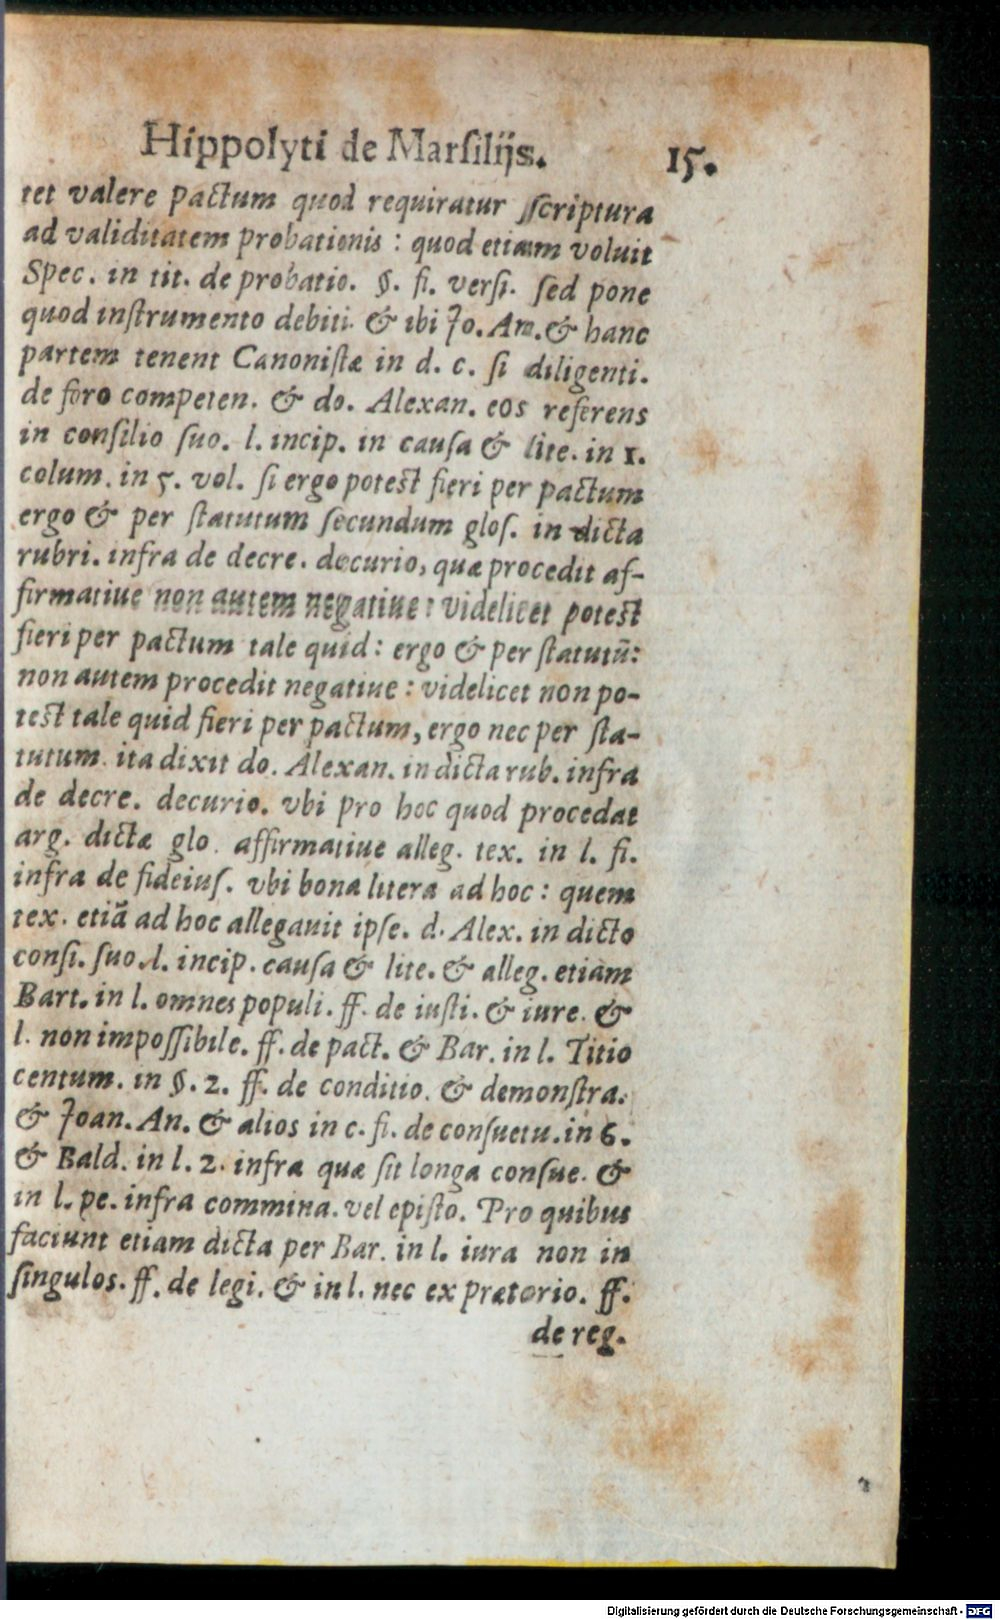 Hippolyti de Marſilijs. 15.
tet valere pactum quod requiratur ſſcriptura
ad validitatem probationis : quod etiam voluit
Spec. in tit. de probatio. §. fi. verſi. ſed pone
quod inſtrumento debiti. & ibi Jo. An. & hanc
partem tenent Canoniſtæ in d. c. ſi diligenti.
de foro competen. & do. Alexan. eos referens
in conſilio ſuo. l. incip. in cauſa & lite. in 1.
colum. in 5. vol. ſi ergo poteſt fieri per pactum
ergo & per ſtatutum ſecundum gloſ. in dicta
rubri. infra de decre. decurio, quæ procedit af-
firmatiue non autem negatiue : videlicet poteſt
fieri per pactum tale quid : ergo & per ſtatutũ:
non autem procedit negatiue : videlicet non po-
teſt tale quid fieri per pactum, ergo nec per ſta-
tutum. ita dixit do. Alexan. in dicta rub. infra
de decre. decurio. vbi pro hoc quod procedat
arg. dictæ glo. affirmatiue alleg. tex. in l. fi.
infra de fideiuſ. vbi bona litera ad hoc : quem
tex. etiã ad hoc allegauit ipſe. d. Alex. in dicto
conſi. ſuo. l. incip. cauſa & lite. & alleg. etiam
Bart. in l. omnes populi. ff. de iuſti. & iure. &
l. non impoſſibile. ff. de pact. & Bar. in l. Titio
centum. in §. 2. ff. de conditio. & demonſtra.
& Joan. An. & alios in c. fi. de conſuetu. in 6.
& Bald. in l. 2. infra quæ ſit longa conſue. &
in l. pe. infra commina. vel epiſto. Pro quibus
faciunt etiam dicta per Bar. in l. iura non in
ſingulos. ff. de legi. & in l. nec ex prætorio. ff.
de reg.
Digitalisierung gefördert durch die Deutsche Forschungsgemeinschaft - DFG